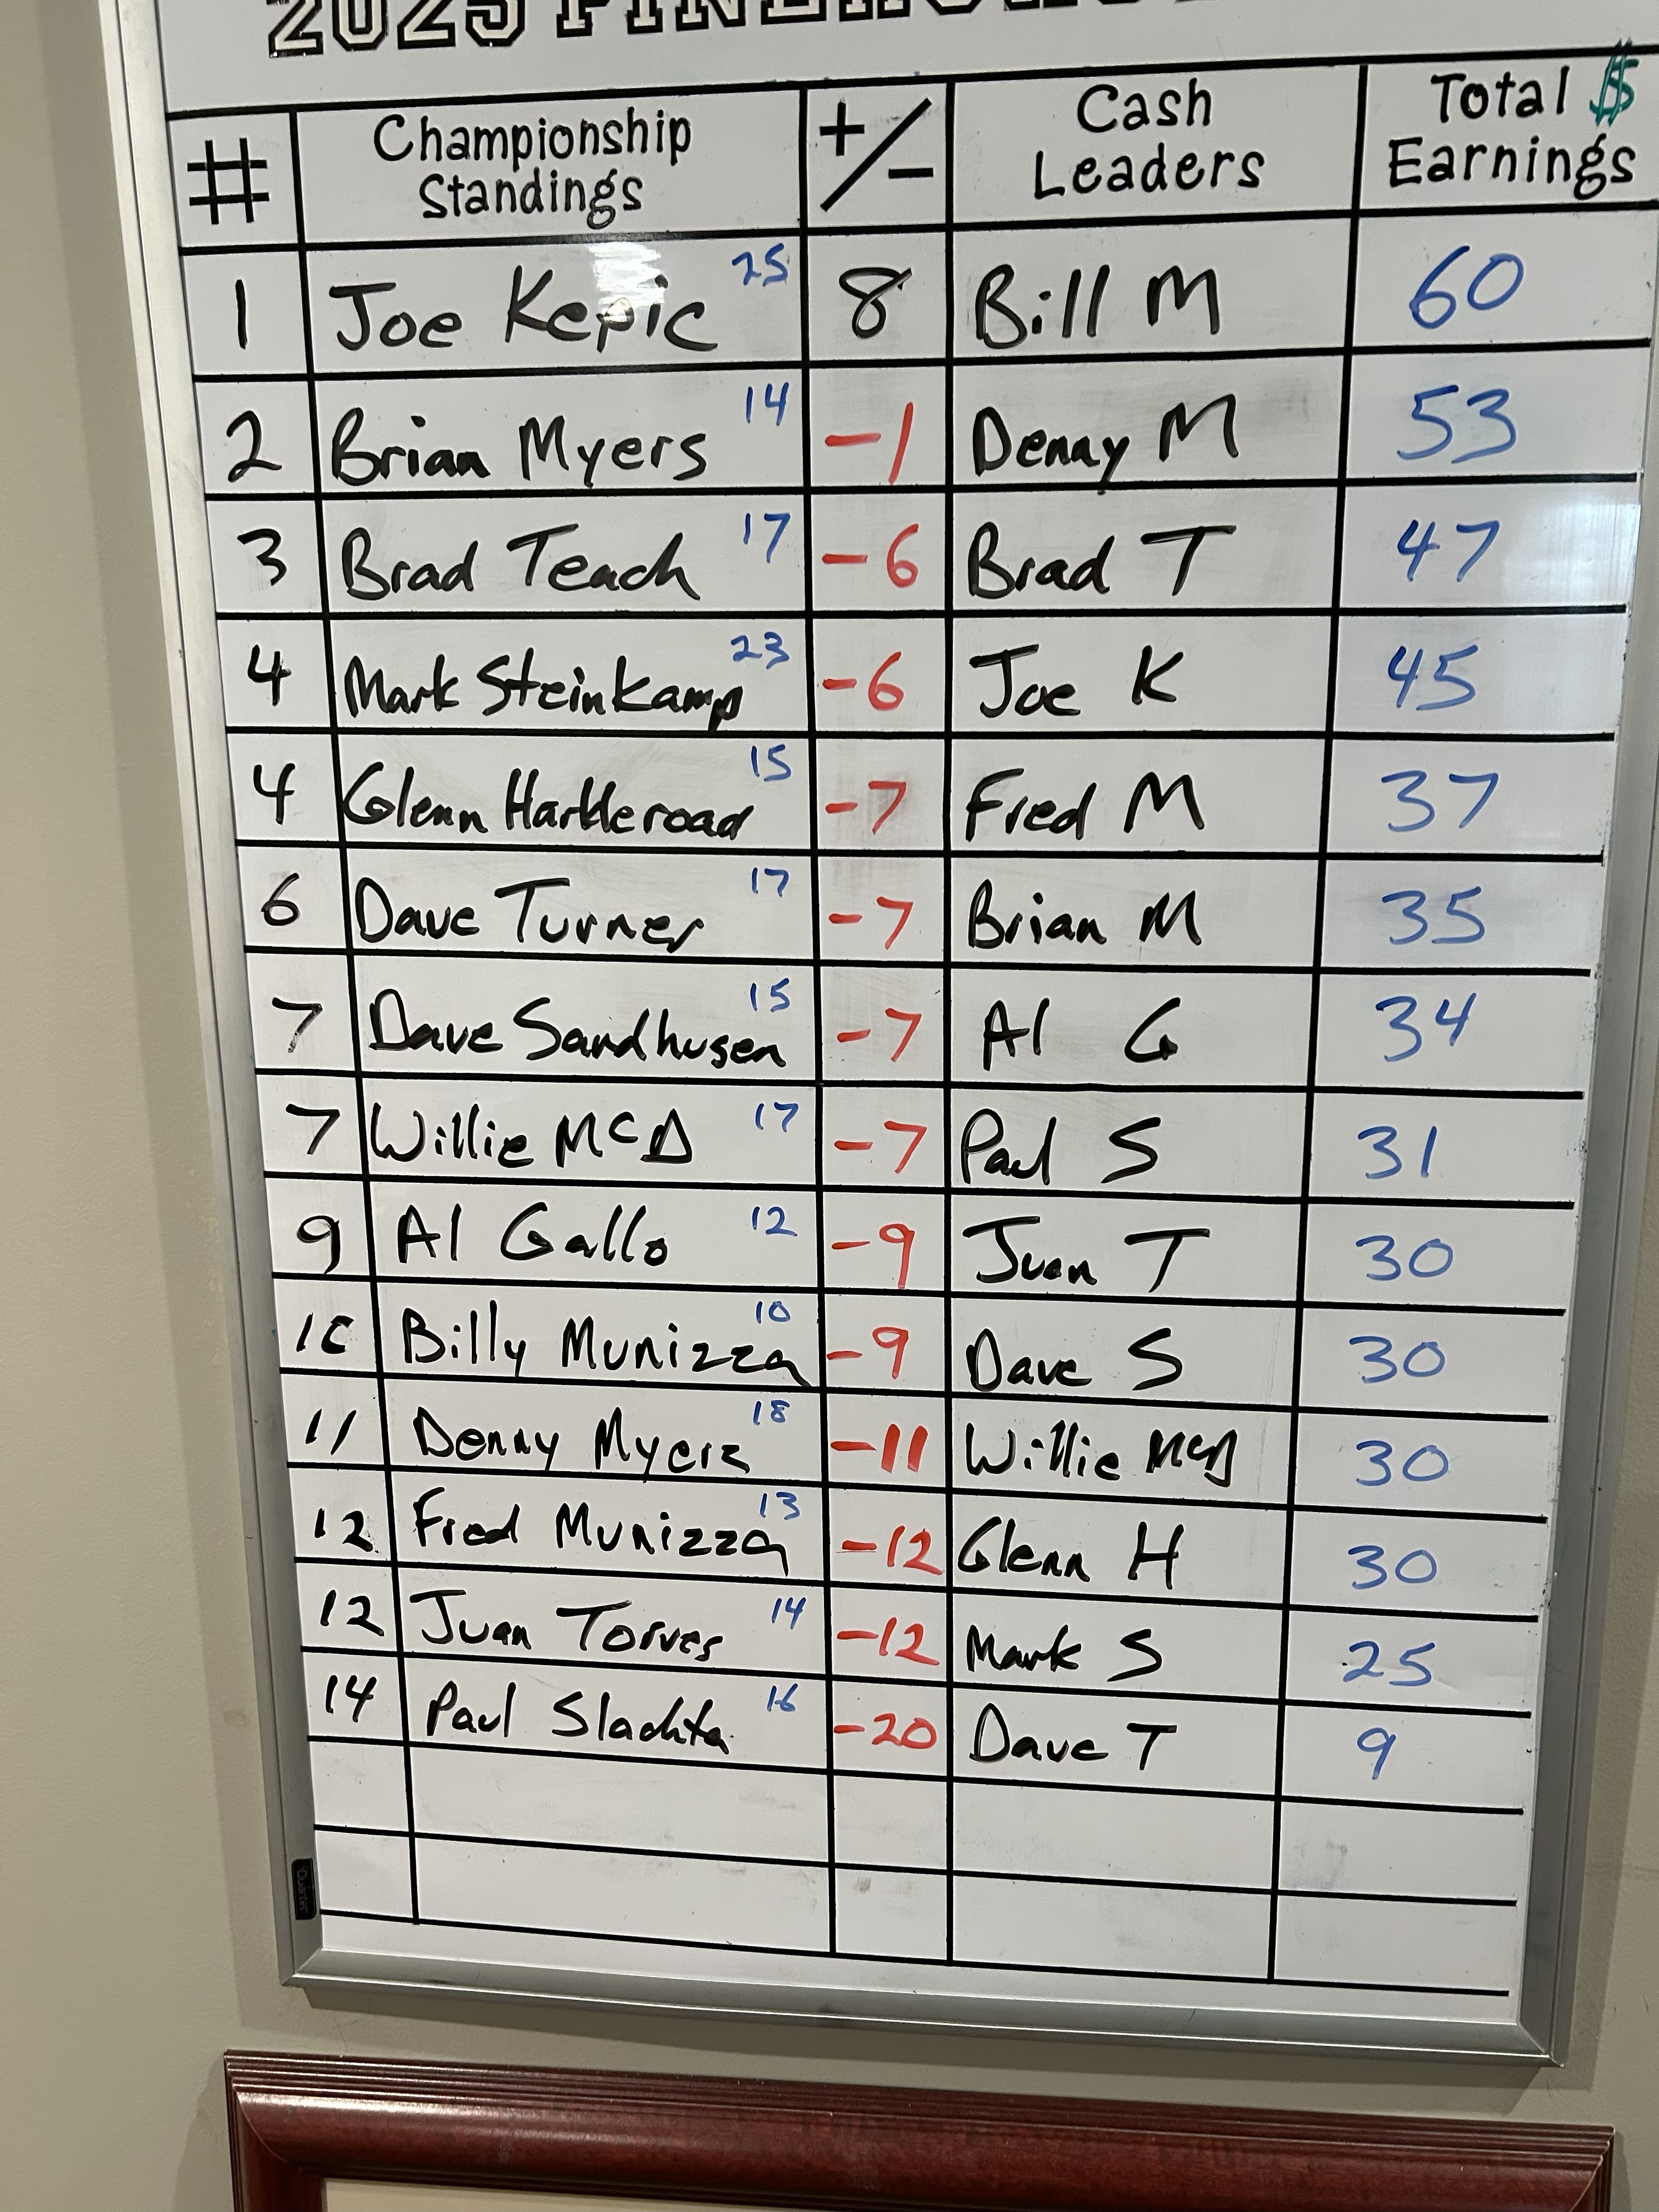 2025
# Championship Standings +/- Cash Leaders Total $ Earnings
1 Joe Kepic 25 8 Bill M 60
2 Brian Myers 14 -1 Denny M 53
3 Brad Teach 17 -6 Brad T 47
4 Mark Steinkamp 23 -6 Joe K 45
4 Glenn Harkleroad 15 -7 Fred M 37
6 Dave Turner 17 -7 Brian M 35
7 Dave Sandhusen 15 -7 Al G 34
7 Willie McD 17 -7 Paul S 31
9 Al Gallo 12 -9 Juan T 30
10 Billy Munizza 10 -9 Dave S 30
11 Denny Myers 18 -11 Willie McD 30
12 Fred Munizza 13 -12 Glenn H 30
12 Juan Torres 14 -12 Mark S 25
14 Paul Slachta 16 -20 Dave T 9
Quartet